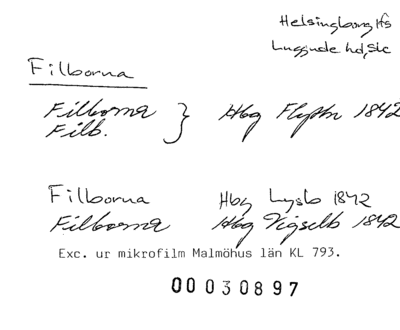 Helsingborg lfs
Luggude hd, Sk
Filborna
Filborna } Hbg Flyttn 1842
Filb.
Filborna Hbg Lysb 1842
Filborna Hbg Vigselb 1842
Exc. ur mikrofilm Malmöhus län KL 793.
00030897